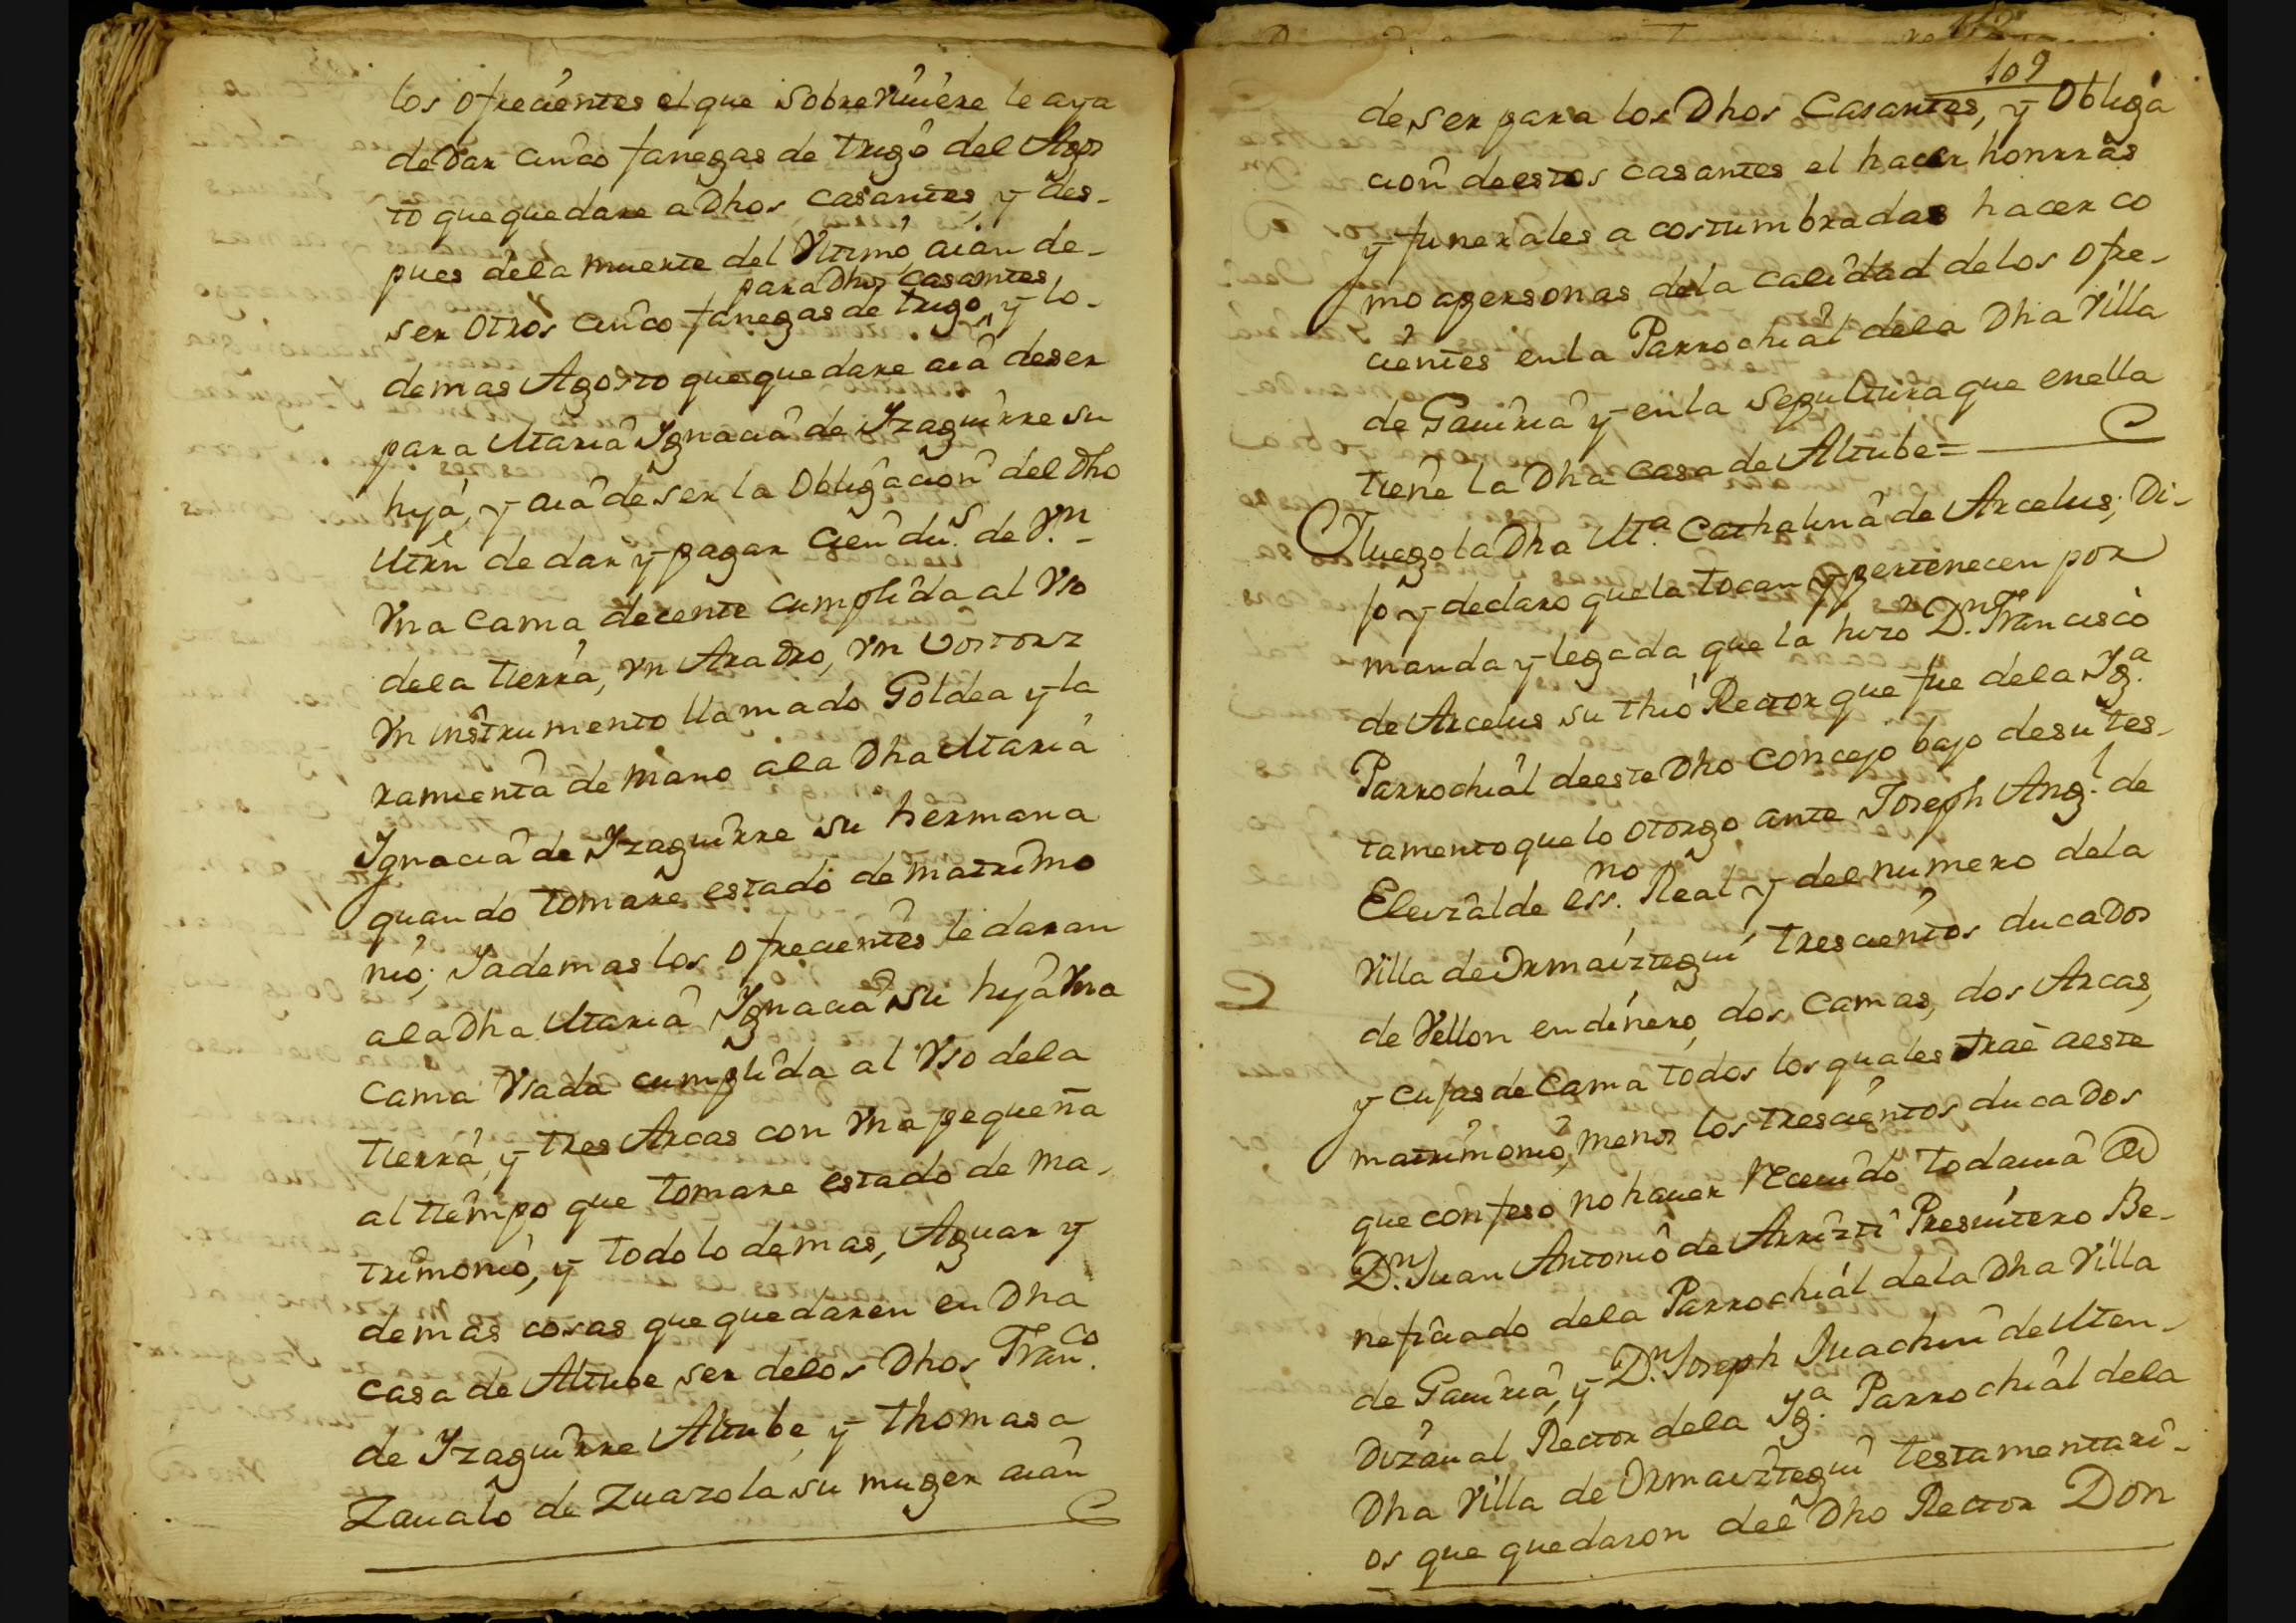 los ofrecientes el que sobreviviere le aya
de dar cinco fanegas de trigo del Agos
to que quedare a Dhos casantes, y des-
pues dela muerte del Vltimo, aian de-
para Dhos casantes
ser otros cinco fanegas de trigo, y lo-
demas Agosto que quedare aia de ser
para Maria Ygnacia de Yzaguirre su
hija, y aia de ser la Obligacion del Dho
Mrn de dar y pagar cien du.s de V.n -
Vna cama decente cumplida al Vso
dela tierra, vn Aradro, vn
Vn instrumento llamado Goldea y la
ramienta de mano ala Dha Maria
Ygnacia de Yzaguirre su hermana
quando tomare estado de matrimo
nio; Y ademas los ofrecientes le daran
ala Dha Maria Ygnacia su hija Vna
cama Vsada cumplida al Vso dela
tierra, y tres Arcas con Vna pequeña
al tiempo que tomare estado de ma-
trimonio, y todo lo demas, Aguar y
demas cosas que quedaren en Dha
casa de Altube ser delos Dhos Fran.co
de Yzaguirre Altube, y Thomasa
Zaualo de Zuazola su muger aian
112
109
de ser para los Dhos Casantes, y Obliga
cion de estos casantes el hacer honrras
y funerales a costumbradas hacer co
mo apersonas dela calidad delos Ofre-
cientes enla Parrochial dela Dha Villa
de Gauiria y enla sepultura que enella
tiene la Dha casa de Altube =
Y luego la Dha M.a Cathalina de Arcelus, Di-
jo y declaro que la tocan y pertenecen por
manda y legada que la hizo D.n Francisco
de Arcelus su thio Rector que fue dela Yg.a
Parrochial deeste Dho Concejo bajo desu tes-
tamento que lo otorgo ante Joseph Ang.l de
Eleizalde ess.no Real y del numero dela
Villa de Ormaiztegui trescientos ducados
de Vellon en dinero, dos camas, dos Arcas,
y cujas de Cama todos los quales trae aeste
matrimonio, menos los trescientos ducados
que confeso no hauer reciuido todauia de
D.n Juan Antonio de Arrizti Presuitero Be-
neficiado dela Parrochial dela Dha Villa
de Gauiria, y D.n Joseph Juachin de Men-
dizaual Rector dela Yg.a Parrochial dela
Dha Villa de Ormaiztegui testamentari-
os que quedaron del Dho Rector Don